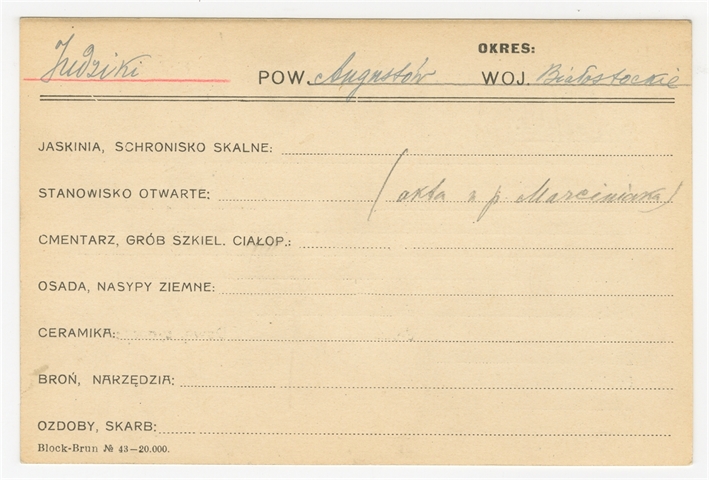 OKRES:
Judziki POW. Augustów WOJ. Białostockie
JASKINIA, SCHRONISKO SKALNE:
STANOWISKO OTWARTE: (akta u p. Marciniaka)
CMENTARZ, GRÓB SZKIEL. CIAŁOP.:
OSADA, NASYPY ZIEMNE:
CERAMIKA:
BROŃ, NARZĘDZIA:
OZDOBY, SKARB:
Block-Brun № 43—20.000.